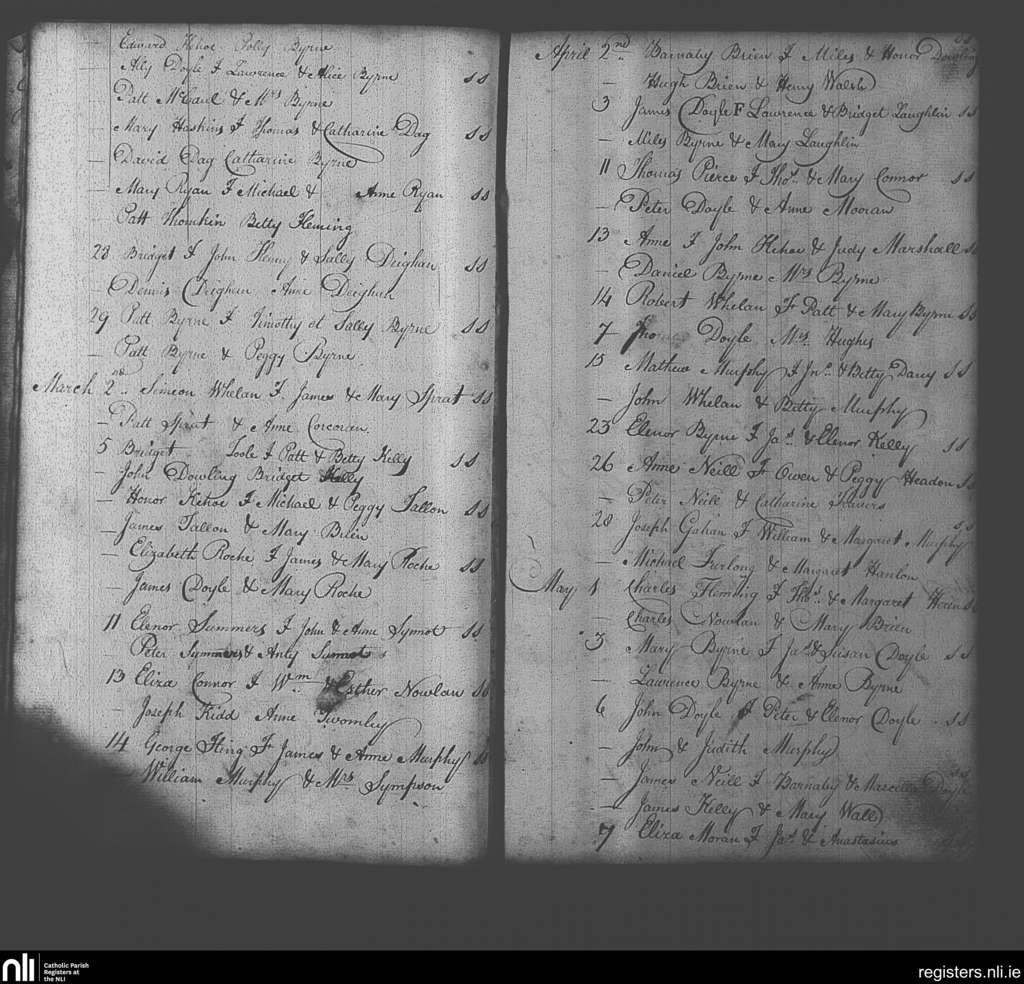 Edward Kehoe Polly Byrne
— Aly Doyle F Lawrence & Alice Byrne SS
Patt McCaul & Mrs Byrne
— Mary Haskins F Thomas & Catharine Day SS
— David Day Catharine Byrne
— Mary Ryan F Michael & Anne Ryan SS
Patt Thomkin Betty Fleming
28 Bridget F John Fleming & Sally Deighan SS
Dennis Deighan Anne Deighan
29 Patt Byrne F Timothy et Sally Byrne SS
— Patt Byrne & Peggy Byrne
March 2nd Simeon Whelan F James & Mary Sprat SS
— Patt Sprat & Anne Corcoran
5 Bridget Toole F Patt & Betty Kelly SS
— John Dowling Bridget Kelly
— Honor Kehoe F Michael & Peggy Tallon SS
— James Talleon & Mary Brien
— Elizabeth Roche F James & Mary Roche SS
— James Doyle & Mary Roche
11 Elenor Summers F John & Anne Symot SS
Peter Symmers & Anty
13 Eliza Connor F Wm & Esther Nowlan SS
— Joseph Kidd Anne Twomley
14 George Fling F James & Anne Murphy SS
William Murphy & Mrs Sympson
April 2nd Barnaby Brien F Miles & Honor Dowling SS
— Hugh Brien & Henry Walsh
3 James Doyle F Lawrence & Bridget Laughlin SS
— Miles Byrne & Mary Laughlin
11 Thomas Pierce F Thos & Mary Connor SS
— Peter Doyle & Anne Mooran
13 Anne F John Kehoe & Judy Marshall SS
— Daniel Byrne Mrs Byrne
14 Robert Whelan F Patt & Mary Byrne SS
7 Tho Doyle Mrs Hughes
15 Mathew Murphy F Jno & Betty Darcy SS
— John Whelan & Betty Murphy
23 Elenor Byrne F Jas & Elenor Kelly SS
26 Anne Neill F Owen & Peggy Headon SS
— Peter Neill & Catharine
28 Joseph Gahan F William & Margaret Murphy SS
— Michael Furlong & Margaret Hanlon
May 1 Charles Fleming F & Margaret
— Charles Nowlan & Mary Brien
3 Mary Byrne F Jas & Susan Doyle SS
— Lawrence Byrne & Anne Byrne
6 John Doyle F Peter & Elenor Doyle SS
— John & Judith Murphy
— James Neill F Barnaby & Marcella Doyle SS
— James Kelly & Mary Wall
7 Eliza Moran F Jas & Anastasius
nli Catholic Parish
Registers at
the NLI
registers.nli.ie